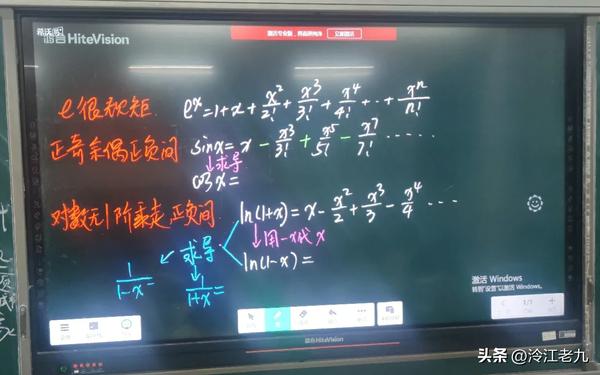 希沃
HiteVision
e很规矩 eˣ=1+x+x²/2!+x³/3!+x⁴/4!+··+xⁿ/n!
正奇余偶正负间 sinx=x-x³/3!+x⁵/5!-x⁷/7!······
↓求导
cosx=
对数无阶乘走正负间 ln(1+x)=x-x²/2+x³/3-x⁴/4···
求导 ↓用-x代x
1/(1-x)= 1/(1+x)= ln(1-x)=
激活 Windows
转到"设置"以激活 Windows。
1/1
HiteVision
头条 @泠江老九